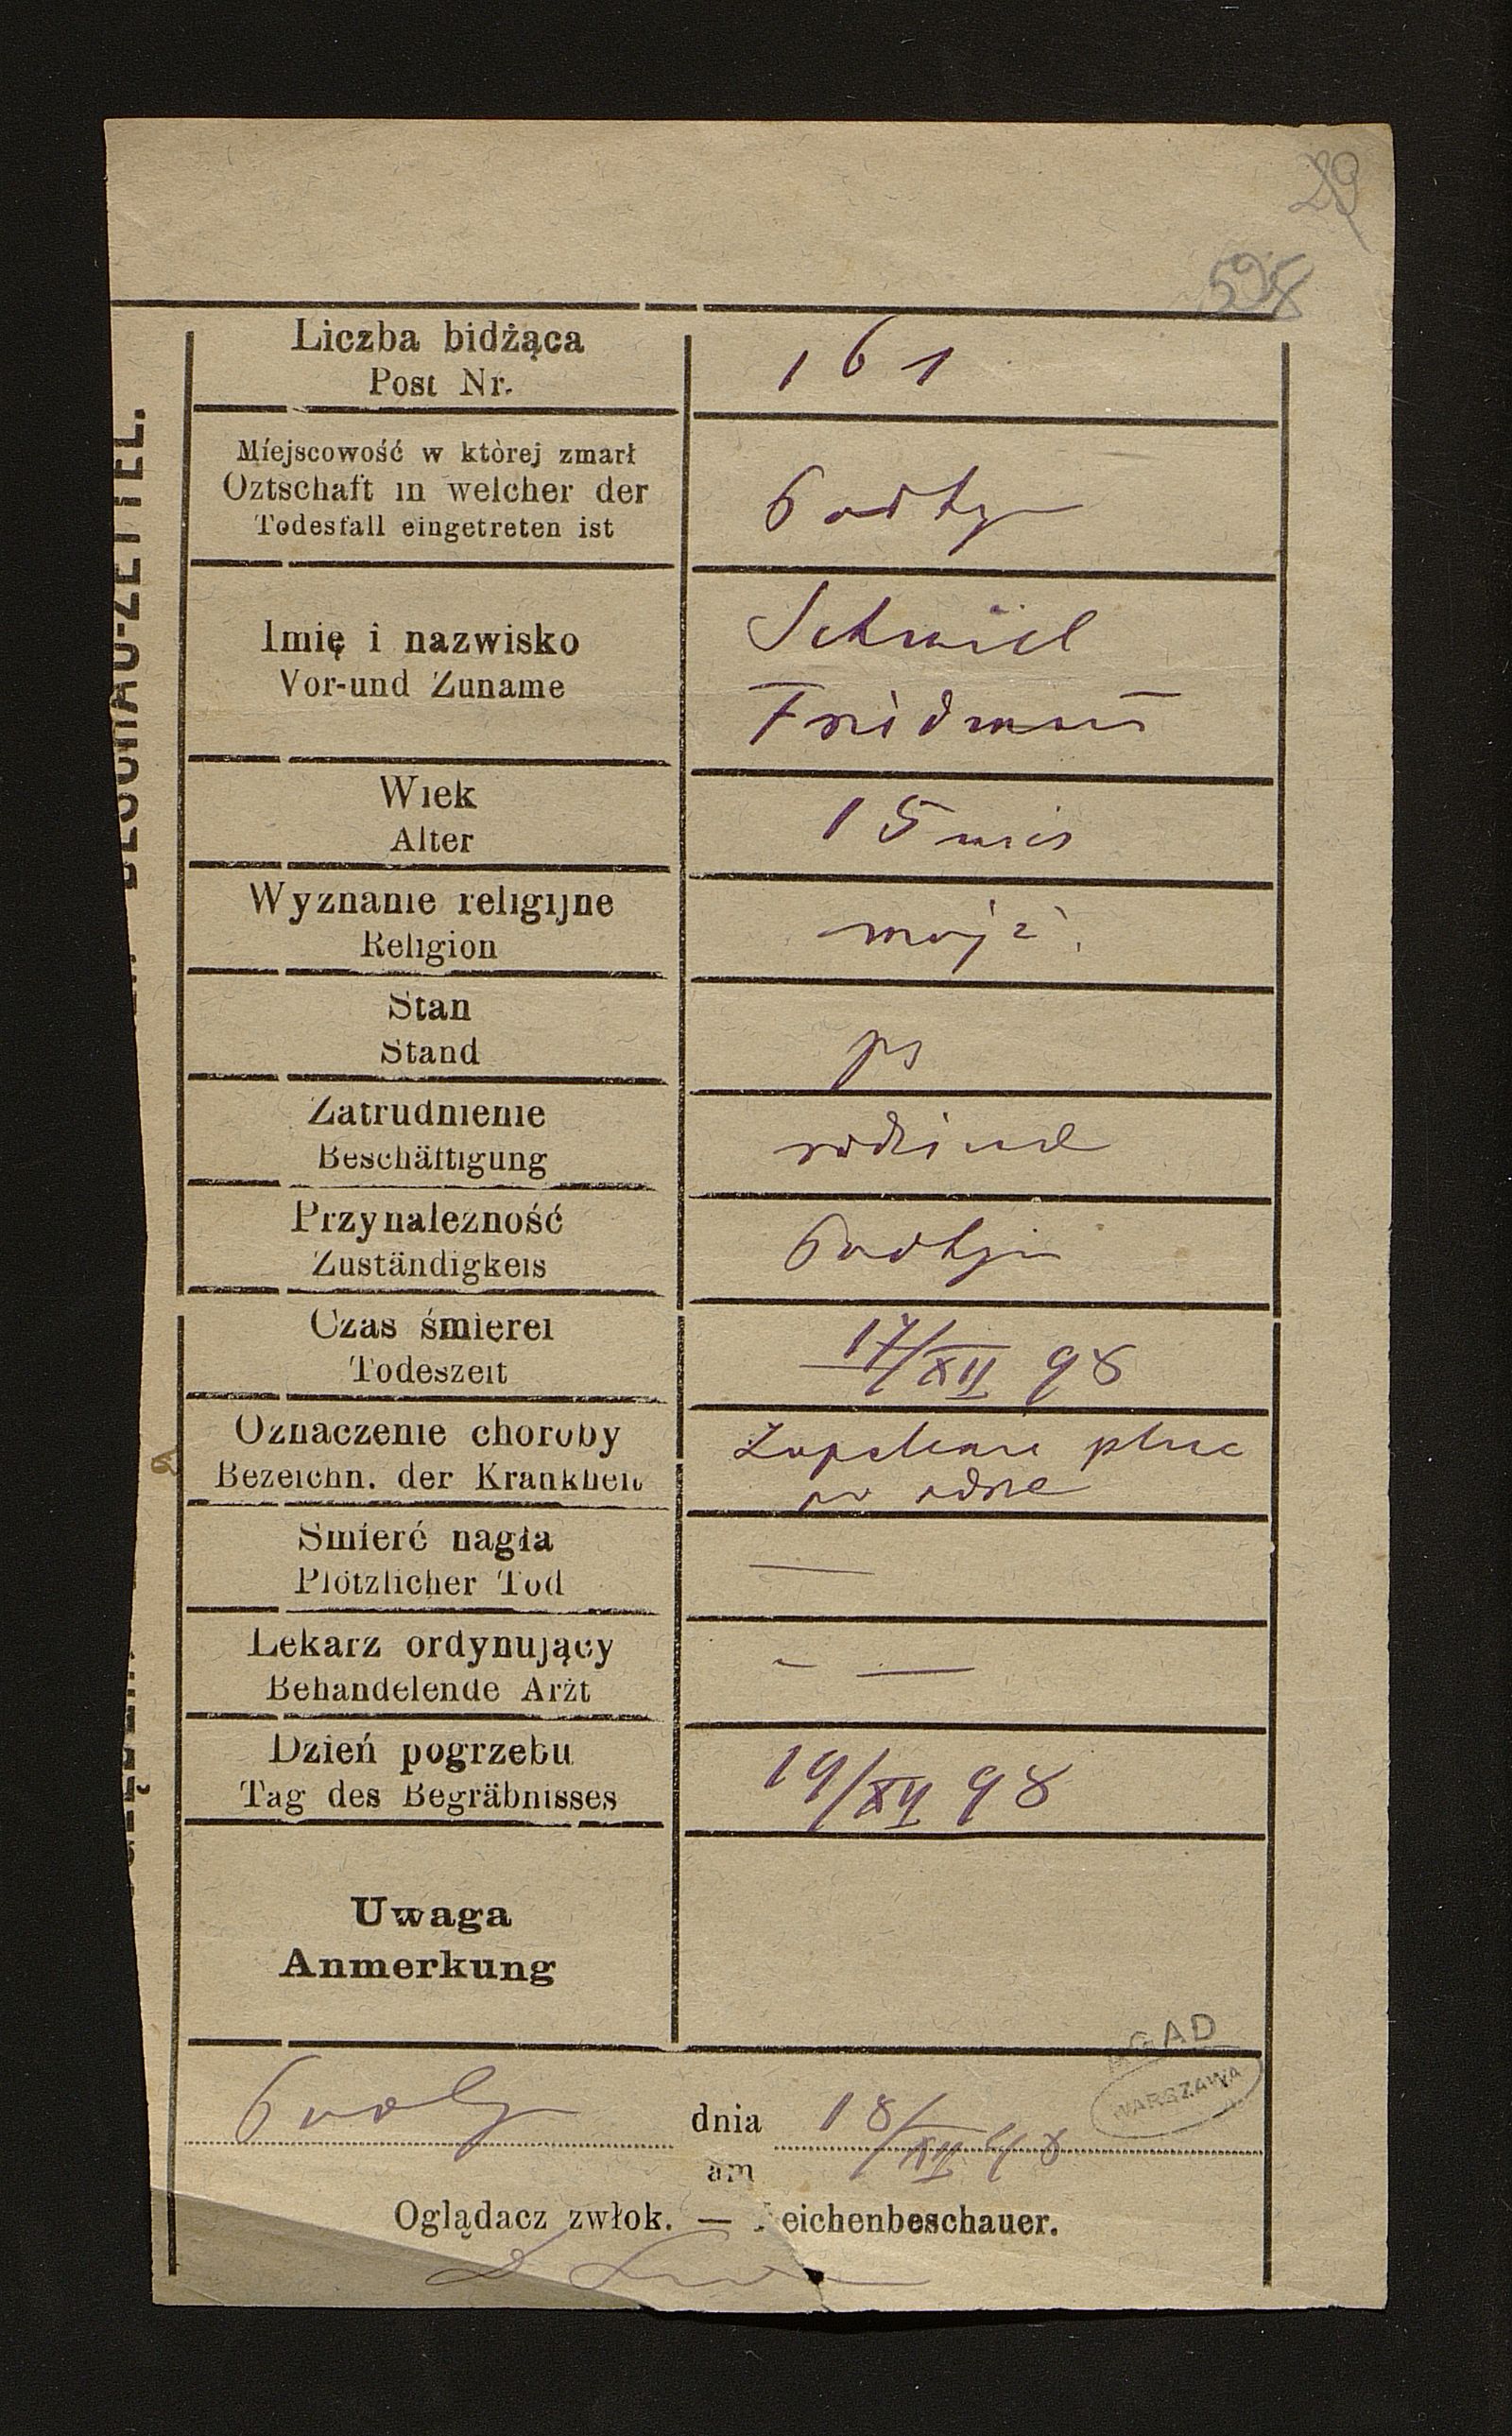 29
598
Liczba bidżąca
Post Nr.
161
Miejscowość w której zmarł
Oztschaft in welcher der
Todesfall eingetreten ist
Imię i nazwisko
Vor-und Zuname
Schmiel
Fridman
Wiek
Alter
15 mies
Wyznanie religijne
Religion
mojż.
Stan
Stand
Zatrudnienie
Beschäftigung
Przynależność
Zuständigkeis
Czas śmierei
Todeszeit
17/XII 98
Oznaczenie choroby
Bezeichn. der Krankheit
Zapalenie płuc
po odrze
Śmierć nagła
Plötzlicher Tod
—
Lekarz ordynujący
Behandelende Arżt
- —
Dzień pogrzebu
Tag des Begräbnisses
19/XII 98
Uwaga
Anmerkung
AGAD
WARSZAWA
dnia 18/XII 98
am
Oglądacz zwłok. — Leichenbeschauer.
BESCHAU-ZETTEL.